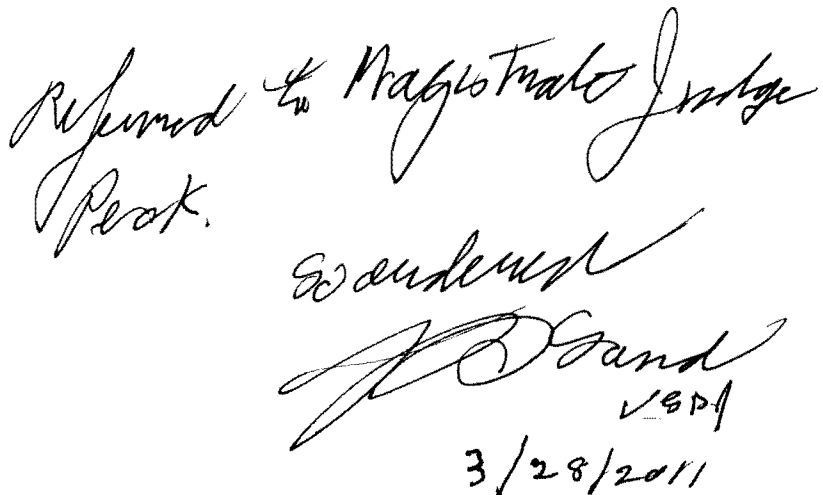 Referred to Magistrate Judge
Peck.
So ordered
LBSand
USDJ
3/28/2011